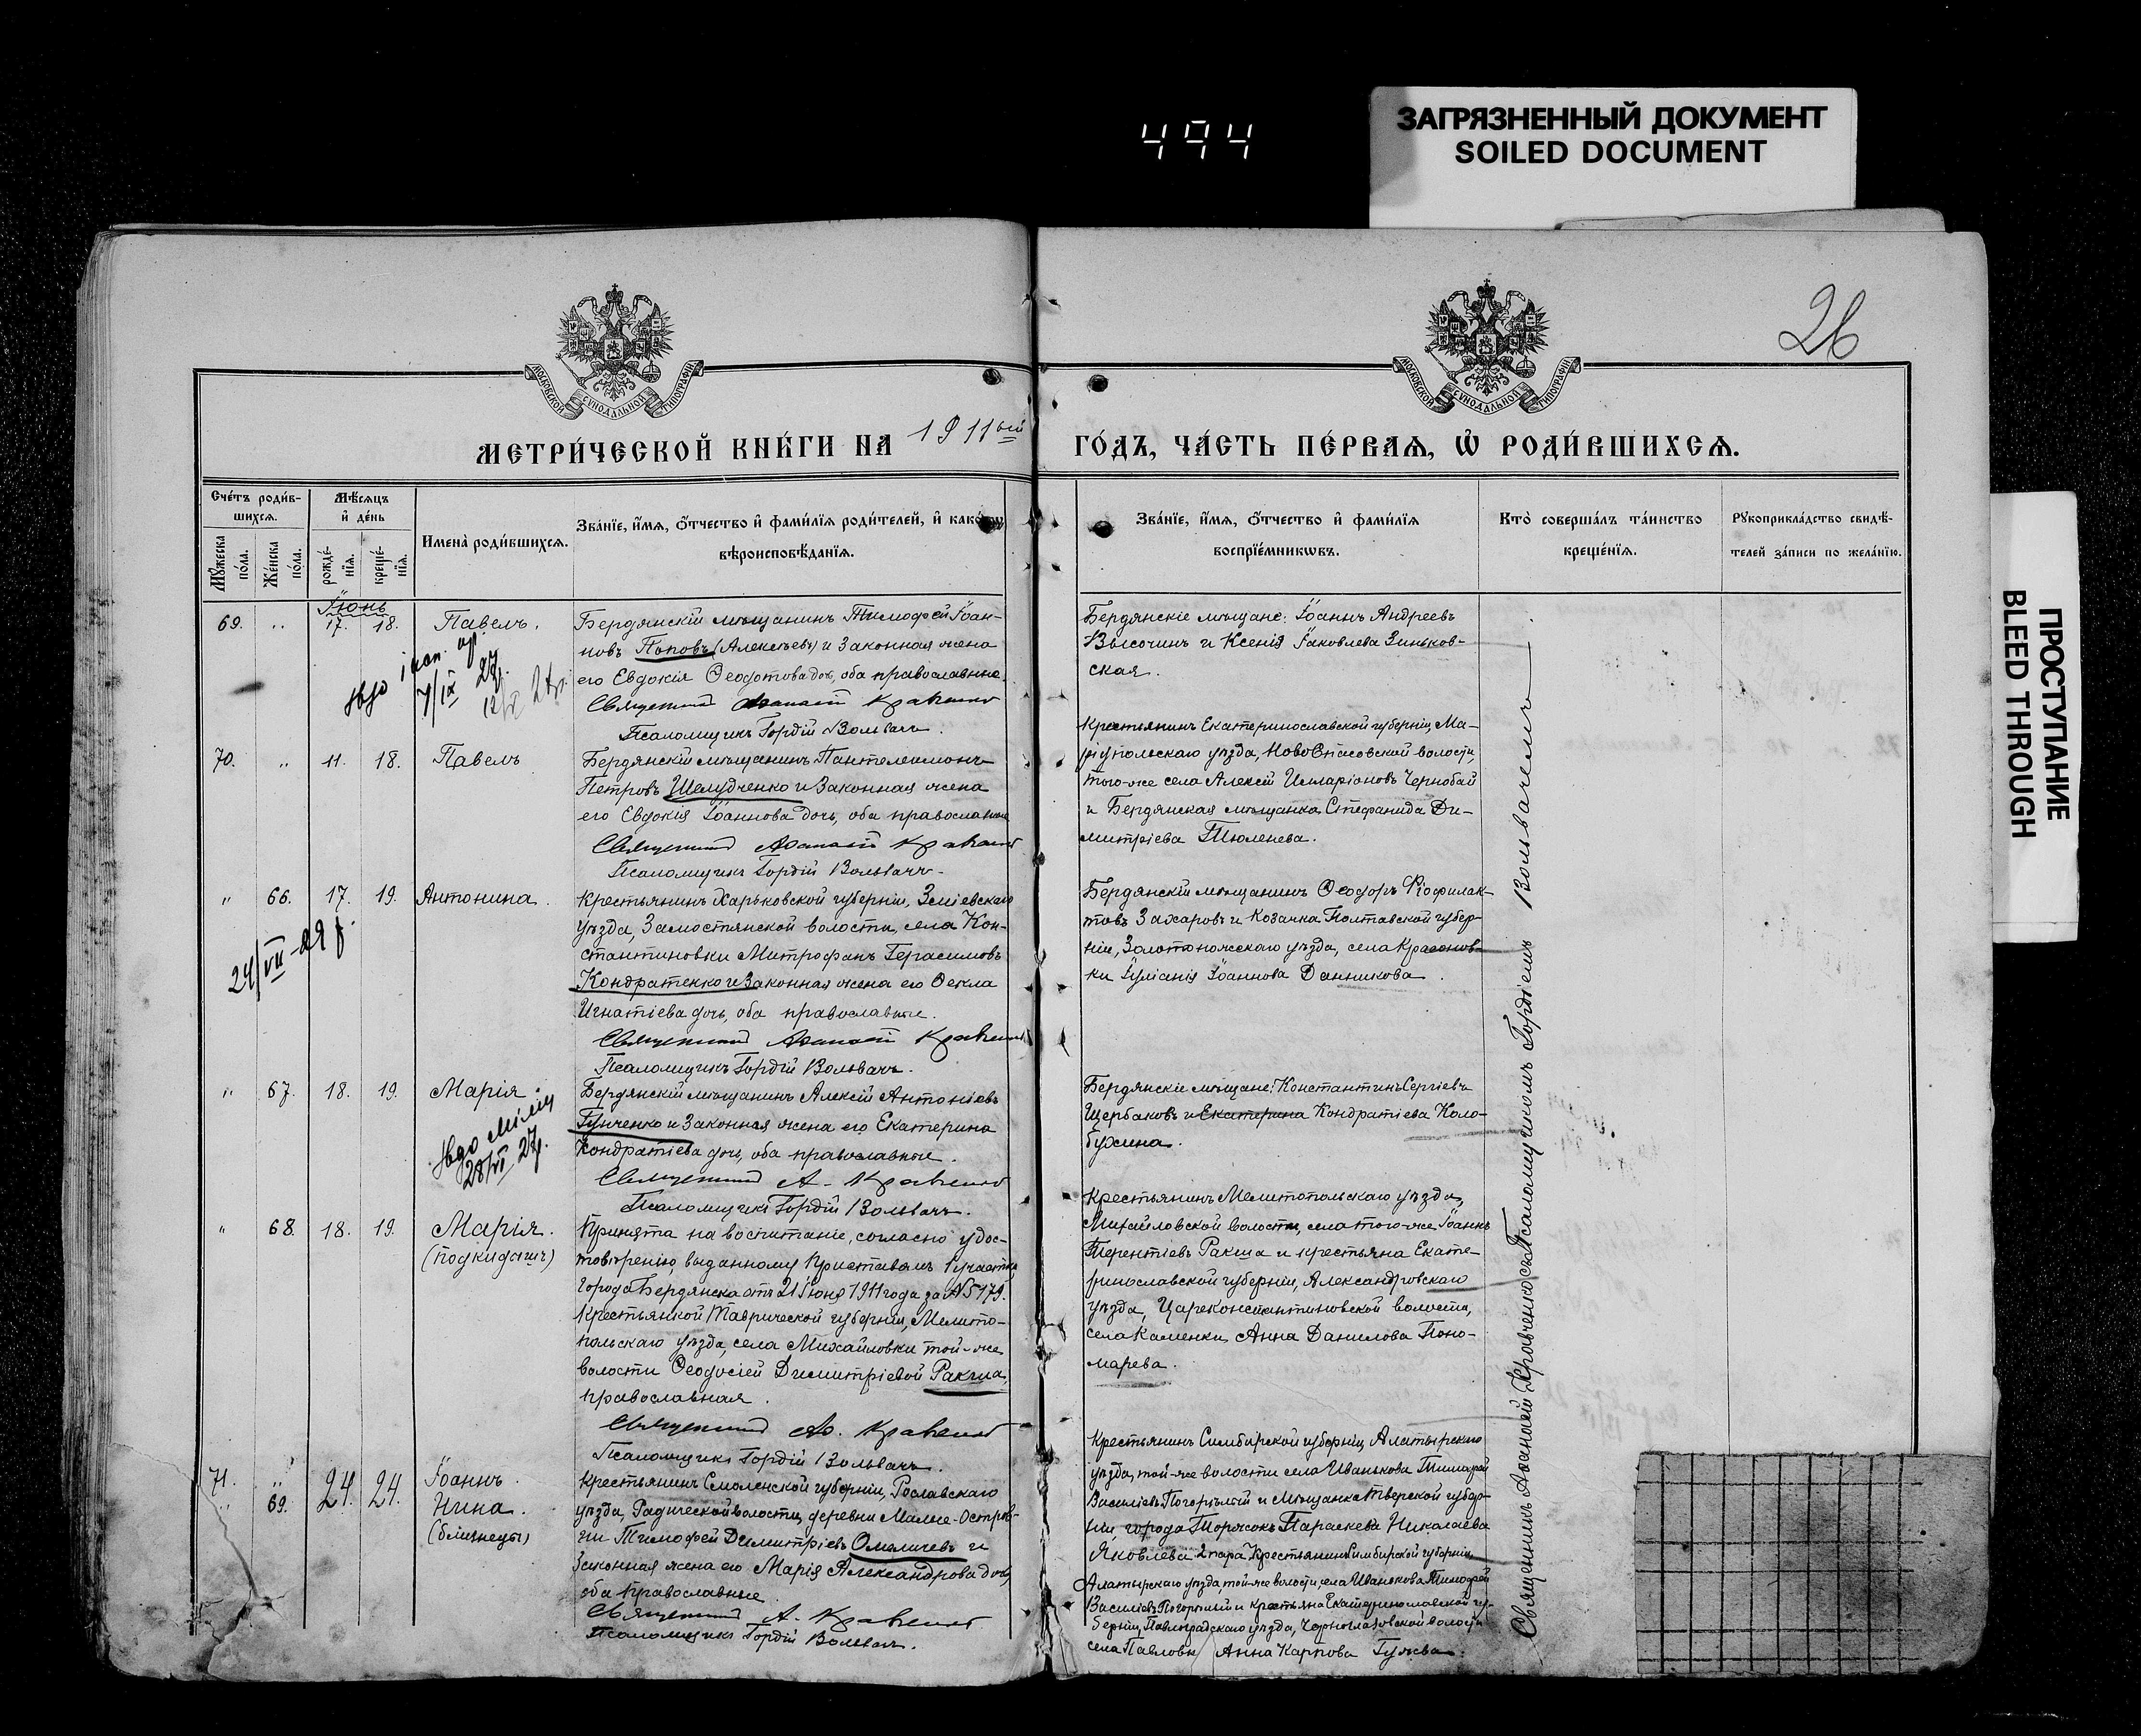 494
ЗАГРЯЗНЕННЫЙ ДОКУМЕНТ
SOILED DOCUMENT
ПРОСТУПАНИЕ
BLEED THROUGH
26
МОСКОВСКОЙ СѴНОДАЛЬНОЙ ТИПОГРАФІИ
МОСКОВСКОЙ СѴНОДАЛЬНОЙ ТИПОГРАФІИ
МЕТРИ́ЧЕСКОЙ КНИ́ГИ НА 1911ый
ГО́ДЪ, ЧА́СТЬ ПЕ́РВАѦ, Ѡ҆ РОДИ́ВШИХСѦ.
Сче́тъ роди́в-
шихсѧ.
Мꙋ́жеска по́ла.
Же́нска по́ла.
Мѣ́сѧцъ
и҆ де́нь
рожде́-
нїѧ.
креще́-
нїѧ.
Имена̀ роди́вшихсѧ.
Зва́нїе, и҆́мѧ, ѻ҆́тчество и҆ фами́лїѧ роди́телей, и҆ како́гѡ
вѣроисповѣ́данїѧ.
Зва́нїе, и҆́мѧ, ѻ҆́тчество и҆ фами́лїѧ
воспрїе́мникѡвъ.
Кто̀ соверша́лъ та́инство
креще́нїѧ.
Рꙋкоприкла́дство свидѣ́-
телей за́писи по жела́нїю.
Іюнь
69. „ 17. 18. Павелъ.
Бердянскій мѣщанинъ Тимофей Іоан-
новъ Поповъ (Алексѣевъ) и законная жена
его Евдокія Ѳеодотова дочь, оба православные.
Священникъ Аѳанасій Кравченко
Псаломщикъ Гордій Вользачъ.
Бердянскіе мѣщане: Іоаннъ Андреевъ
Высочинъ и Ксенія Іаковлева Зиньков-
ская.
70. „ 11. 18. Павелъ
Бердянскій мѣщанинъ Пантелеимонъ
Петровъ Шелудченко и законная жена
его Евдокія Іоаннова дочь, оба православные
Священникъ Аѳанасій Кравченко
Псаломщикъ Гордій Вользачъ.
Крестьянинъ Екатеринославской губерніи, Ма-
ріупольскаго уѣзда, НовоСпасовской волости,
того-же села Алексій Илларіоновъ Чернобай
и Бердянская мѣщанка Стефанида Ди-
митріева Тюленева.
„ 66. 17. 19. Антонина.
24/VII-29 г.
Крестьянинъ Харьковской губерніи, Зміевскаго
уѣзда, Замостянской волости, села Кон-
стантиновки Митрофанъ Герасимовъ
Кондратенко и законная жена его Ѳекла
Игнатіева дочь, оба православные.
Священникъ Аѳанасій Кравченко
Псаломщикъ Гордій Вользачъ.
Бердянскій мѣщанинъ Ѳеодоръ Ѳіофилак-
товъ Захаровъ и Козачка Полтавской губер-
ніи, Золотоношскаго уѣзда, села Красенов-
ки Іуліанія Іоаннова Данникова.
„ 67. 18. 19. Марія.
28/VI 27 г.
Бердянскій мѣщанинъ Алексій Антоніевъ
Гунченко и законная жена его Екатерина
Кондратіева дочь, оба православные.
Священникъ А. Кравченко
Псаломщикъ Гордій Вользачъ.
Бердянскіе мѣщане: Константинъ Сергіевъ
Щербаковъ и Екатерина Кондратіева Коло-
бухина.
„ 68. 18. 19. Марія.
(подкидышъ)
Принята на воспитаніе, согласно удос-
товѣренію выданному Приставомъ 1 участка
города Бердянска отъ 21 Іюня 1911 года за №5179.
крестьянкой Таврической губерніи, Мелито-
польскаго уѣзда, села Михайловки той-же
волости Ѳеодосіей Димитріевой Ракша,
православная.
Священникъ Аѳ. Кравченко
Псаломщикъ Гордій Вользачъ.
Крестьянинъ Мелитопольскаго уѣзда,
Михайловской волости, села того-же Іоаннъ
Терентіевъ Ракша и крестьянка Екате-
ринославской губерніи, Александровскаго
уѣзда, Цареконстантиновской волости,
села Каменки, Анна Данилова Поно-
марева.
71. „ 24. 24. Іоаннъ.
„ 69. Нина.
(близнецы)
Крестьянинъ Смоленской губерніи, Рославскаго
уѣзда, Радической волости, деревни Малые-Остров-
ки Тимофей Димитріевъ Омеличевъ и
законная жена его Марія Александрова дочь,
оба православные.
Священникъ А. Кравченко
Псаломщикъ Гордій Вользачъ.
Крестьянинъ Симбирской губерніи, Алатырскаго
уѣзда, той-же волости села Иванькова Тимофей
Василіевъ Погорѣлый и мѣщанка Тверской губер-
ніи, города Торжокъ Параскева Николаева
Яковлева 2 пара Крестьянинъ Симбирской губерніи
Алатырскаго уѣзда, той-же волости, села Иванькова Тимофей
Василіевъ Погорѣлый и крестьянка Екатеринославской гу-
берніи, Павлоградскаго уѣзда, волости
села Павловки Анна Карпова Гуляева.
Священникъ Аѳанасій Кравченко съ Псаломщикомъ Гордіемъ Вользачемъ.